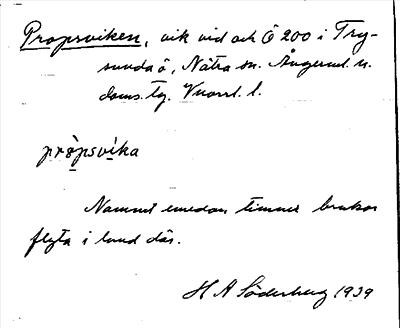 Propsviken, vik vid och Ö 200 i Try-
sunda ö, Nätra sn. Ångerml. n.
doms. tg. Vnorrl. l.
pròpsvìka
Namnet emedan timmer brukar
flyta i land där.
H A Söderberg 1939